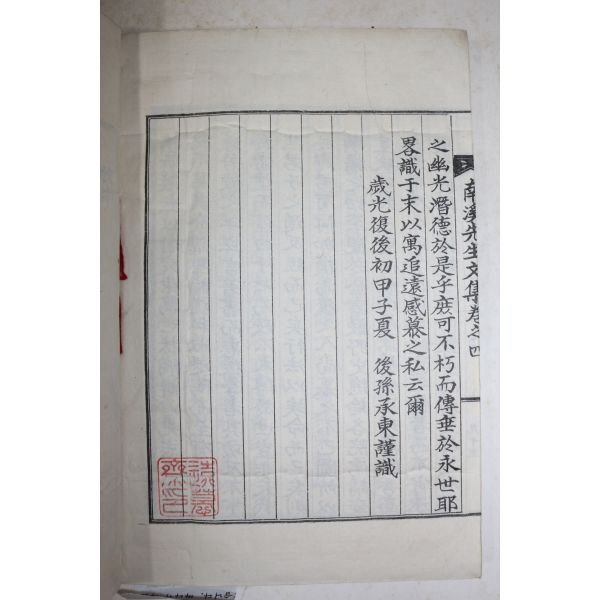 南溪先生文集卷之四
之幽光潛德於是乎庶可不朽而傳垂於永世耶
畧識于末以寓追遠感慕之私云爾
歲光復後初甲子夏 後孫承東謹識